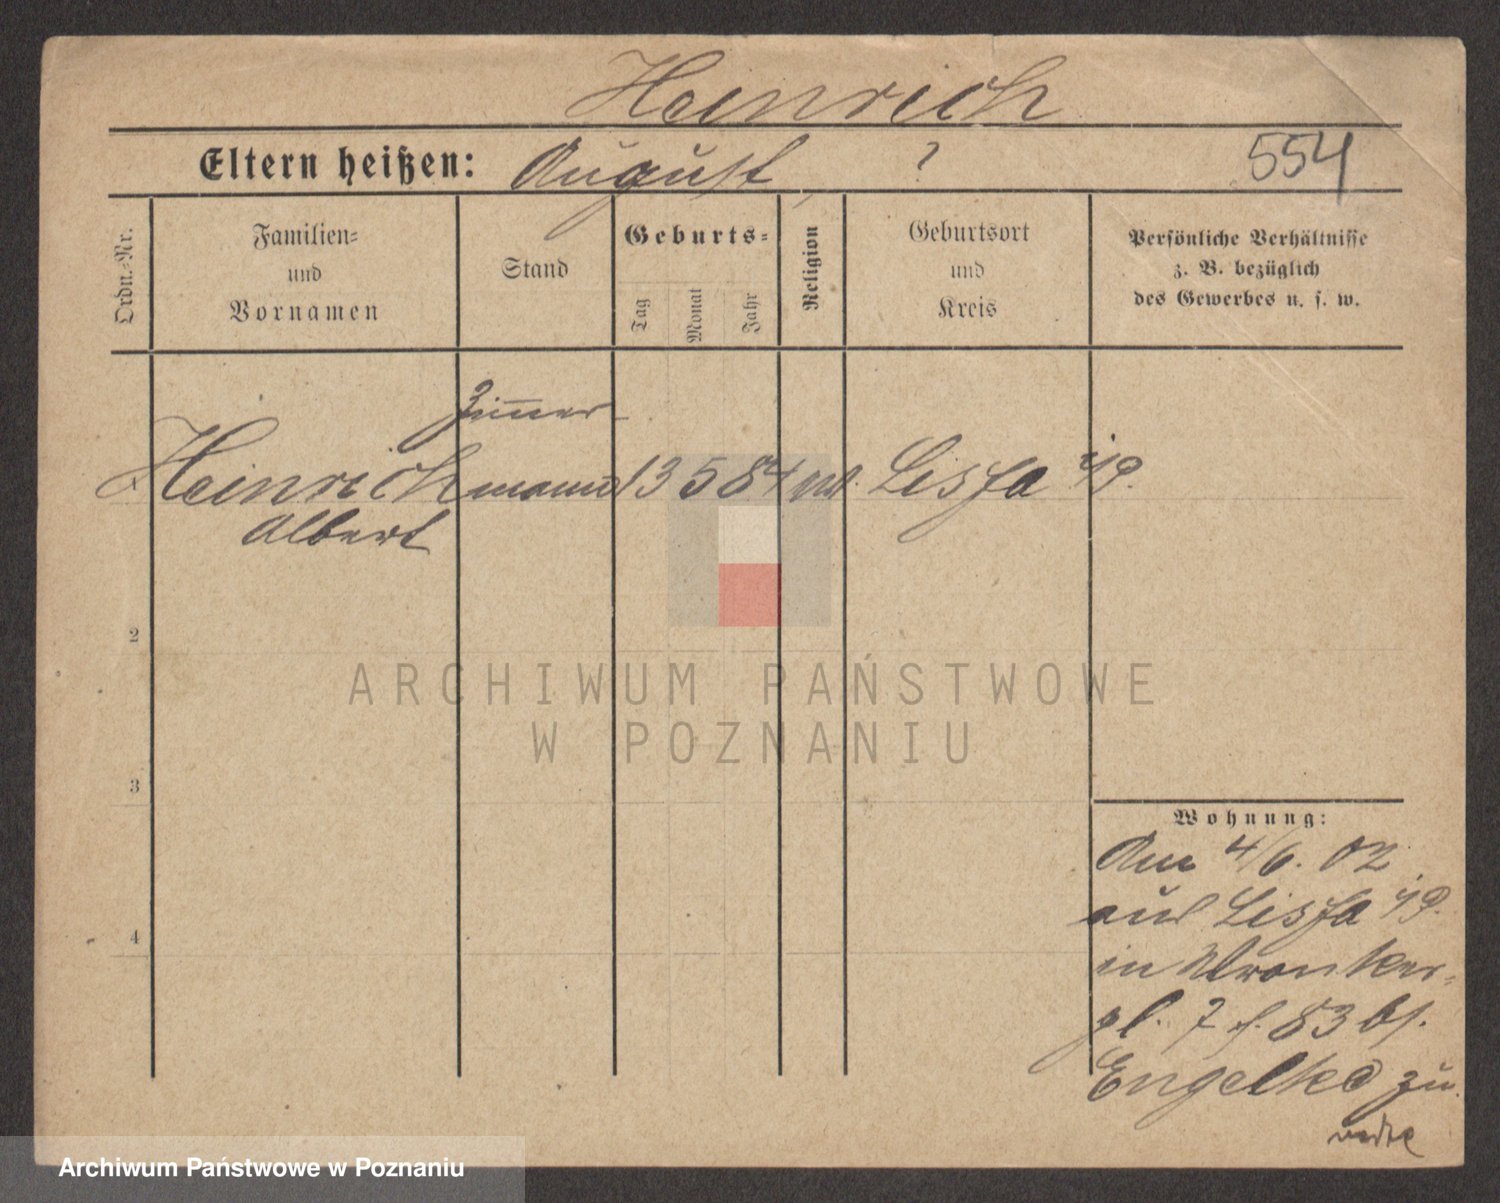 Heinrich
Eltern heißen: August, ? 554
Ordn.-Nr.
Familien-
und
Vornamen
Stand
Geburts-
Tag
Monat
Jahr
Religion
Geburtsort
und
Kreis
Persönliche Verhältnisse
z. B. bezüglich
des Gewerbes u. s. w.
Zimmer
Heinrich mann 13 5 84 Lissa
Albert
2
3
4
Wohnung:
Am 4/6. 02
aus Lissa
in Wronker-
pl. 7 83 bs.
Engelke zu.
ARCHIWUM PAŃSTWOWE
W POZNANIU
Archiwum Państwowe w Poznaniu